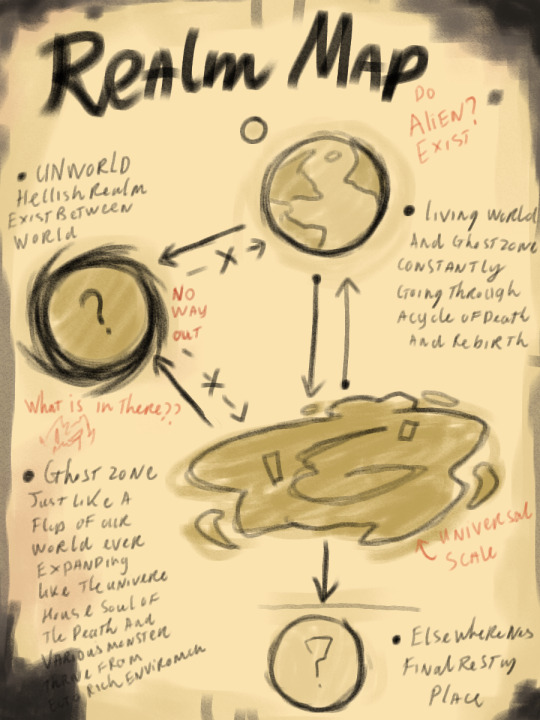 Realm Map
Do
Alien?
Exist
• UNWORLD
Hellish Realm
Exist Between
World
• Living World
And Ghostzone
Constantly
Going Through
A cycle of Death
And Rebirth
? X
NO
WAY
OUT
X
What is in There??
• Ghost zone
Just like A
Flip of our
World ever
Expanding
like The universe
House Soul of
The Death And
Various monster
Thrive From
Rich Enviromen
Universal
Scale
?
• Elsewhereness
Final Resting
Place